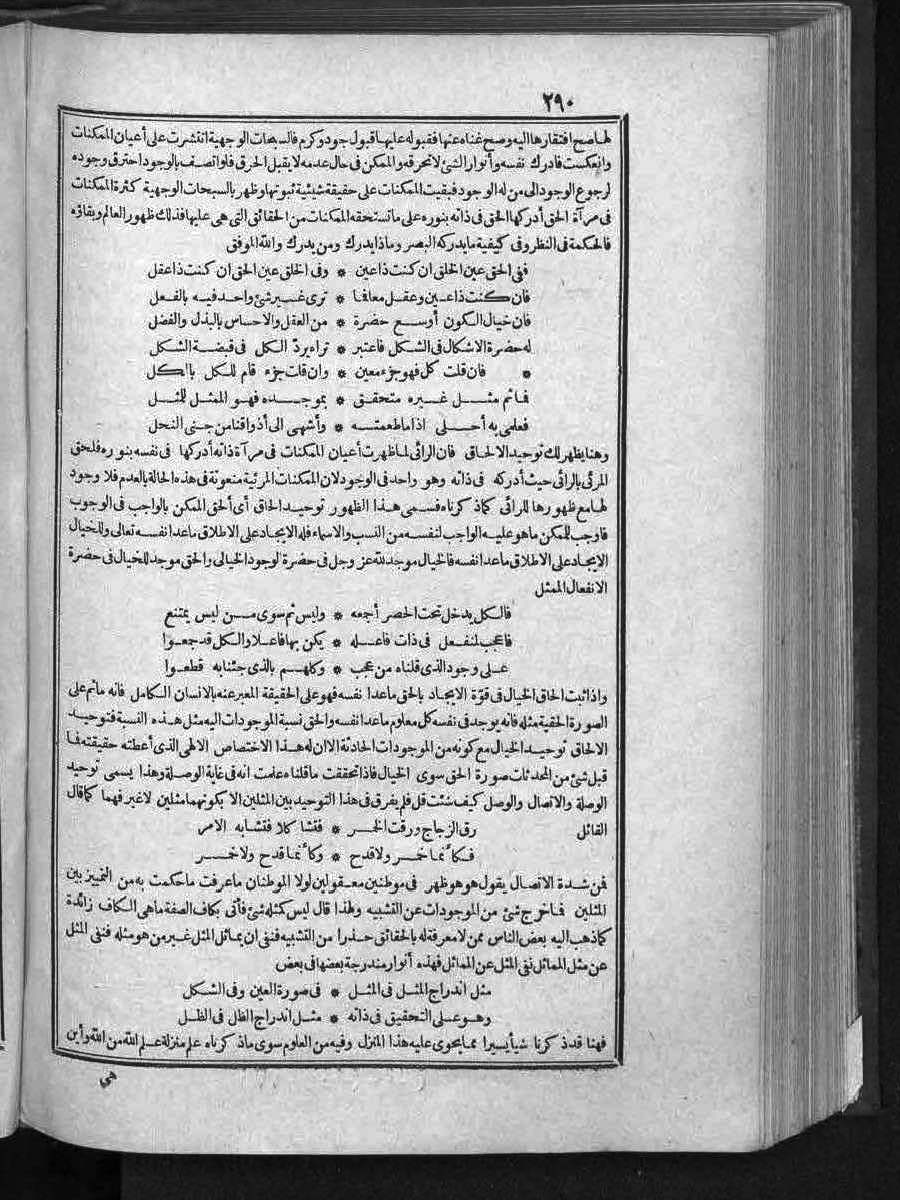 ٢٩٠
لما صح افتقارها اليه وصح غناه عنها فقبوله عليها قبول جود وكرم فالسبحات الوجهية انتشرت على أعيان الممكنات
وانعكست فأدرك نفسه وأنوار الشئ لا تحرقه والممكن فى حال عدمه لا يقبل الحرق فلو اتصف بالوجود احترق وجوده
لرجوع الوجود الى من له الوجود فبقيت الممكنات على حقيقة شيئية ثبوتها وظهر بالسبحات الوجهية كثرة الممكنات
فى مرآة الحق أدركها الحق فى ذاته بنوره على ما تستحقه الممكنات من الحقائق التى هى عليها فذلك ظهور العالم وبقاؤه
فالحكمة فى النظر وفى كيفية ما يدركه البصر وماذا يدرك ومن يدرك والله الموفق
ففى الحق عين الخلق ان كنت ذا عين * وفى الخلق عين الحق ان كنت ذا عقل
فان كنت ذا عين وعقل معافا * ترى غير شئ واحد فيه بالفعل
فان خيال الكون أوسع حضرة * من العقل والاحساس بالبذل والفضل
له حضرة الاشكال فى الشكل فاعتبر * تراه يردّ الكل فى قبضة الشكل
* فان قلت كل فهو جزء معين * وان قلت جزء قام للكل بالكل
فما ثم مثل غيره متحقق * بموجده فهو الممثل للمثل
فعلمى به أحلى اذا ما طعمته * وأشهى الى أذواقنا من جنى النحل
وهنا يظهر لك توحيد الالحاق فان الرائى لما ظهرت أعيان الممكنات فى مرآة ذاته أدركها فى نفسه بنوره فلحق
المرئى بالرائى حيث أدركه فى ذاته وهو واحد فى الوجود لان الممكنات المرئية منعوتة فى هذه الحالة بالعدم فلا وجود
لها مع ظهورها للرائى كما ذكرناه فسمى هذا الظهور توحيد الحاق أى ألحق الممكن بالواجب فى الوجوب
فاوجب للممكن ما هو عليه الواجب لنفسه من النسب والاسماء فله الايجاد على الاطلاق ما عدا نفسه تعالى وللخيال
الايجاد على الاطلاق ما عدا نفسه فالخيال موجد لله عز وجل فى حضرة الوجود الخيالى والحق موجد للخيال فى حضرة
الانفعال الممثل
فالكل يدخل تحت الحصر أجمعه * وليس ثم سوى من ليس يمتنع
فاعجب لمنفعل فى ذات فاعله * يكن بها فاعلا والكل قد جمعوا
على وجود الذى قلناه من عجب * وكلهم بالذى جئنا به قطعوا
واذا ثبت الحاق الخيال فى قوّة الايجاد بالحق ما عدا نفسه فهو على الحقيقة المعبر عنه بالانسان الكامل فانه ما ثم على
الصورة الحقية مثله فانه يوجد فى نفسه كل معلوم ما عدا نفسه والحق نسبة الموجودات اليه مثل هذه النسبة فتوحيد
الالحاق توحيد الخيال مع كونه من الموجودات الحادثة الا ان له هذا الاختصاص الالهى الذى أعطته حقيقته فما
قبل شئ من المحدثات صورة الحق سوى الخيال فاذا تحققت ما قلناه علمت انه فى غاية الوصلة وهذا يسمى توحيد
الوصلة والاتصال والوصل كيف شئت قل فلم يفرق فى هذا التوحيد بين المثلين الا بكونهما مثلين لا غير فهما كما قال
القائل
رق الزجاج ورقت الخمر * فتشاكلا فتشابه الامر
فكأنما خمر ولا قدح * وكأنما قدح ولا خمر
فمن شدة الاتصال يقول هو هو وظهر فى موطنين معقولين لولا الموطنان ما عرفت ما حكمت به من التمييز بين
المثلين فما خرج شئ من الموجودات عن التشبيه ولهذا قال ليس كمثله شئ فأتى بكاف الصفة ما هى الكاف زائدة
كما ذهب اليه بعض الناس ممن لا معرفة له بالحقائق حذرا من التشبيه فنفى ان يماثل المثل غير من هو مثله فنفى المثل
عن مثل المماثل نفى المثل عن المماثل فهذه أنوار مندرجة بعضها فى بعض
مثل اندراج المثل فى المثل * فى صورة العين وفى الشكل
وهو على التحقيق فى ذاته * مثل اندراج الظل فى الظل
فهنا قد ذكرنا شيأ يسيرا مما يحوى عليه هذا المنزل وفيه من العلوم سوى ما ذكرناه علم منزلة علم الله من الله وأين
هى